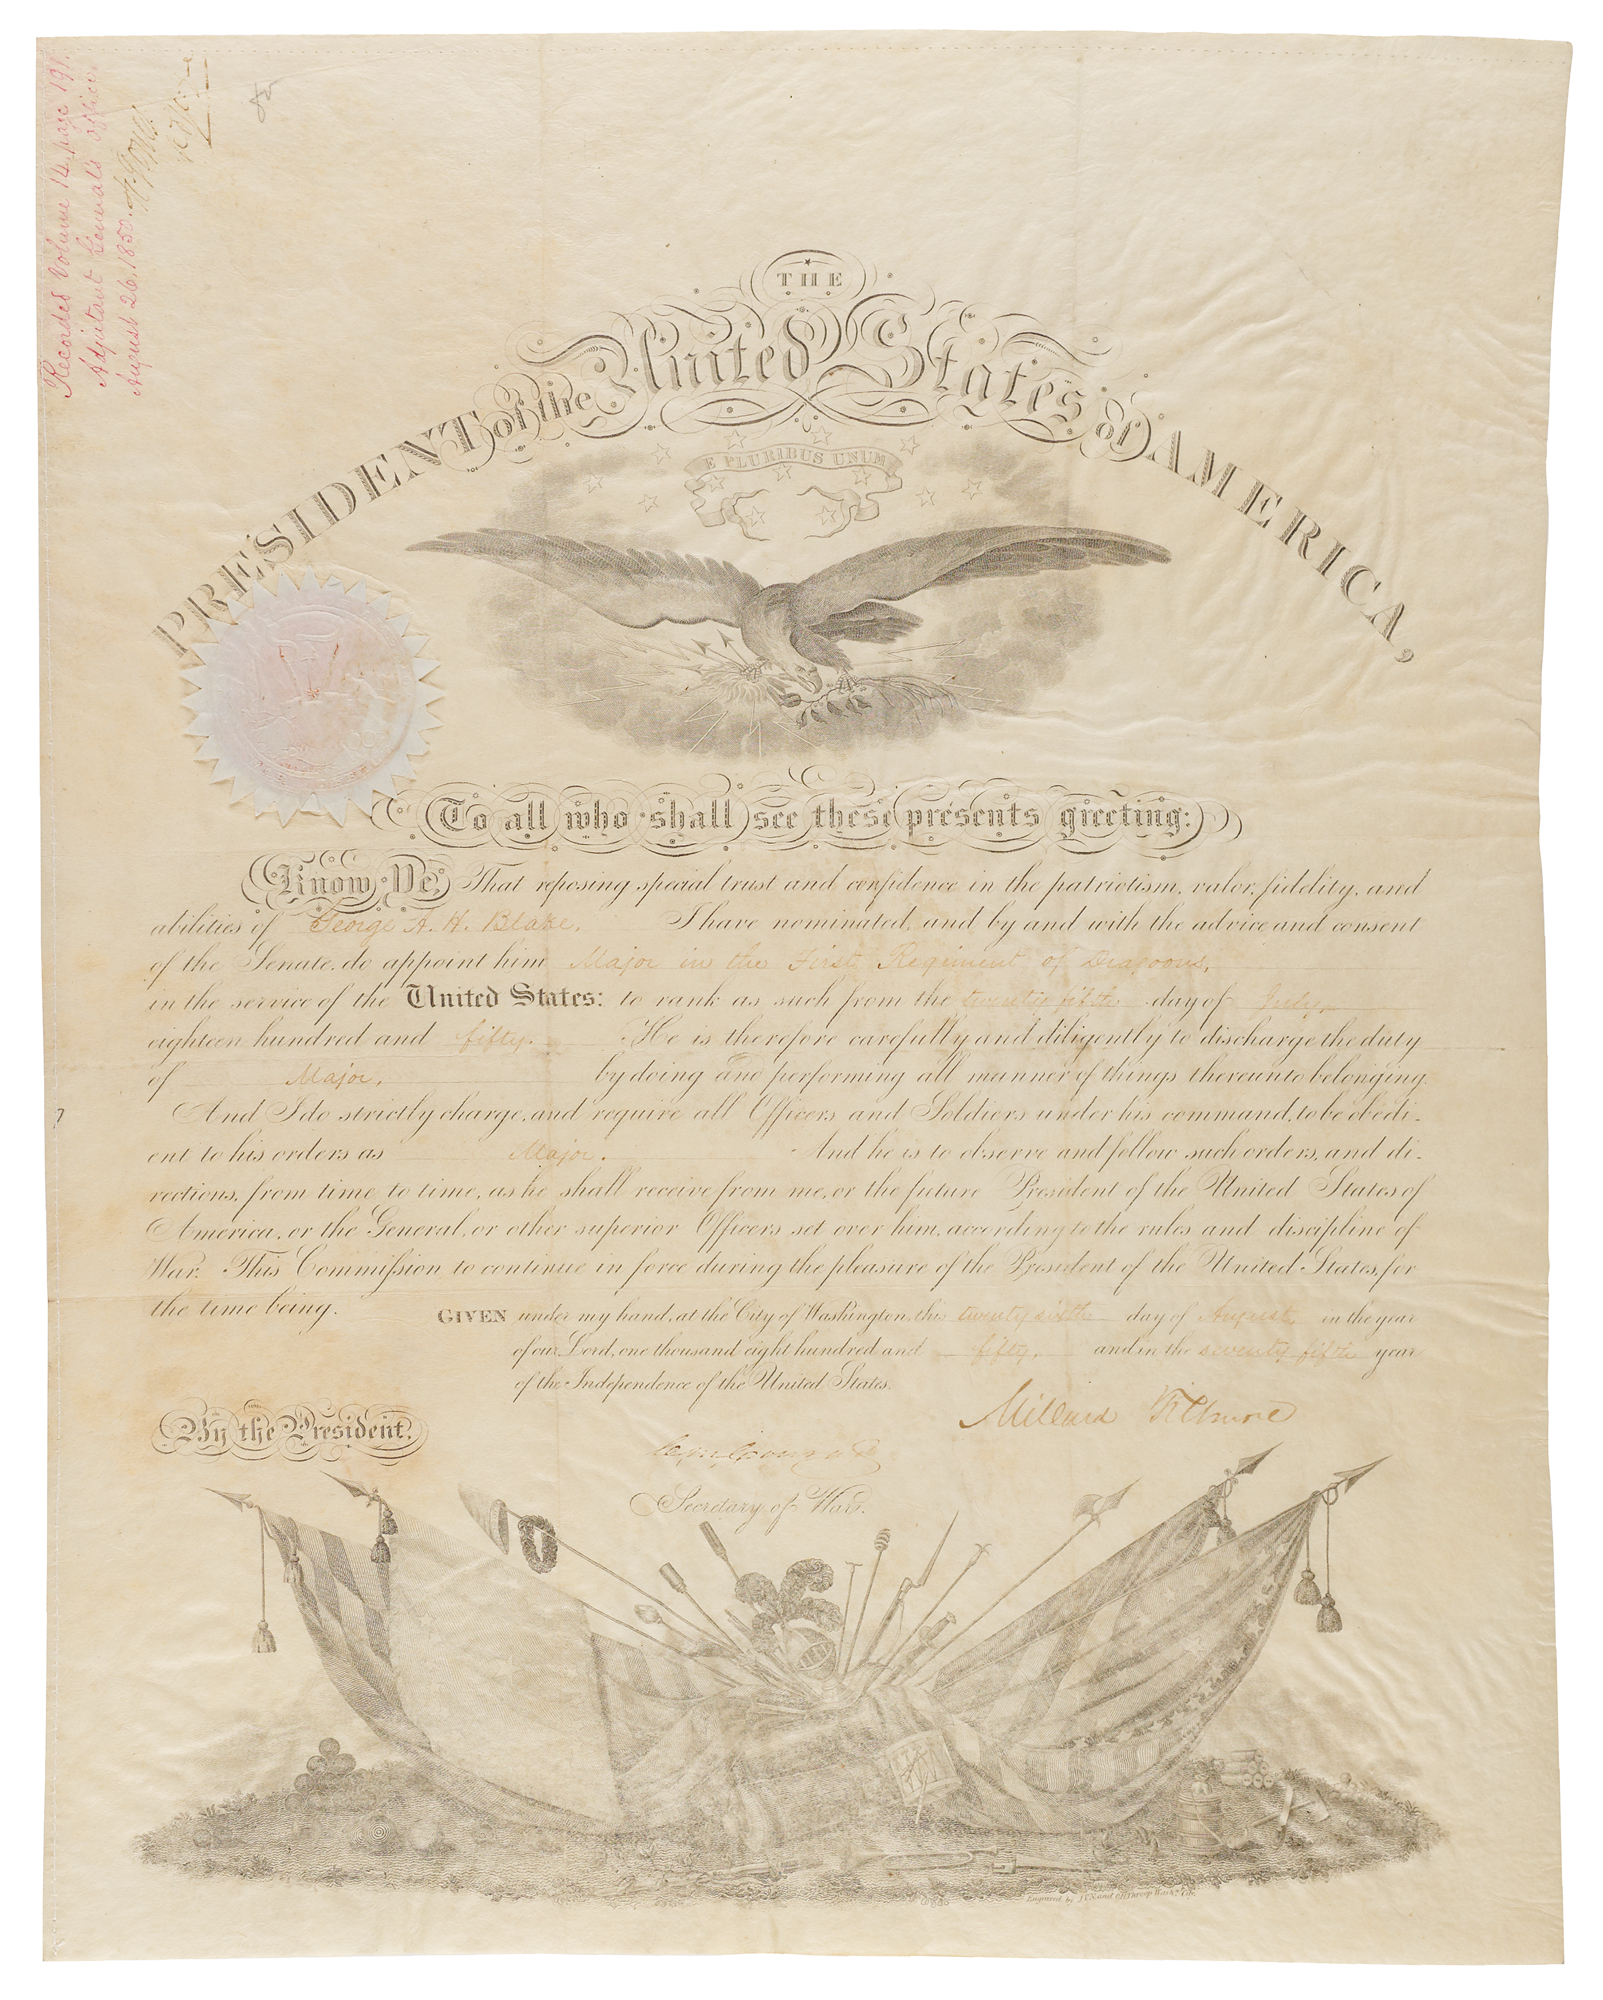 Recorded Volume 14, page 191.
Adjutant General's Office
August 26. 1850.
THE
PRESIDENT of the United States of AMERICA,
E PLURIBUS UNUM
To all who shall see these presents greeting:
Know Ye, That reposing special trust and confidence in the patriotism, valor, fidelity, and
abilities of George A. H. Blake, I have nominated, and by and with the advice and consent
of the Senate, do appoint him Major in the First Regiment of Dragoons,
in the service of the United States: to rank as such from the twenty fifth day of July,
eighteen hundred and fifty. He is therefore carefully and diligently to discharge the duty
of Major, by doing and performing all manner of things thereunto belonging.
And I do strictly charge, and require all Officers and Soldiers under his command, to be obedi-
ent to his orders as Major. And he is to observe and follow such orders, and di-
rections, from time to time, as he shall receive from me, or the future President of the United States of
America, or the General, or other superior Officers set over him, according to the rules and discipline of
War. This Commission to continue in force during the pleasure of the President of the United States, for
the time being.
GIVEN under my hand, at the City of Washington, this twenty sixth day of August, in the year
of our Lord, one thousand eight hundred and fifty, and in the seventy fifth year
of the Independence of the United States.
Millard Fillmore
By the President.
Secretary of War.
Engraved by